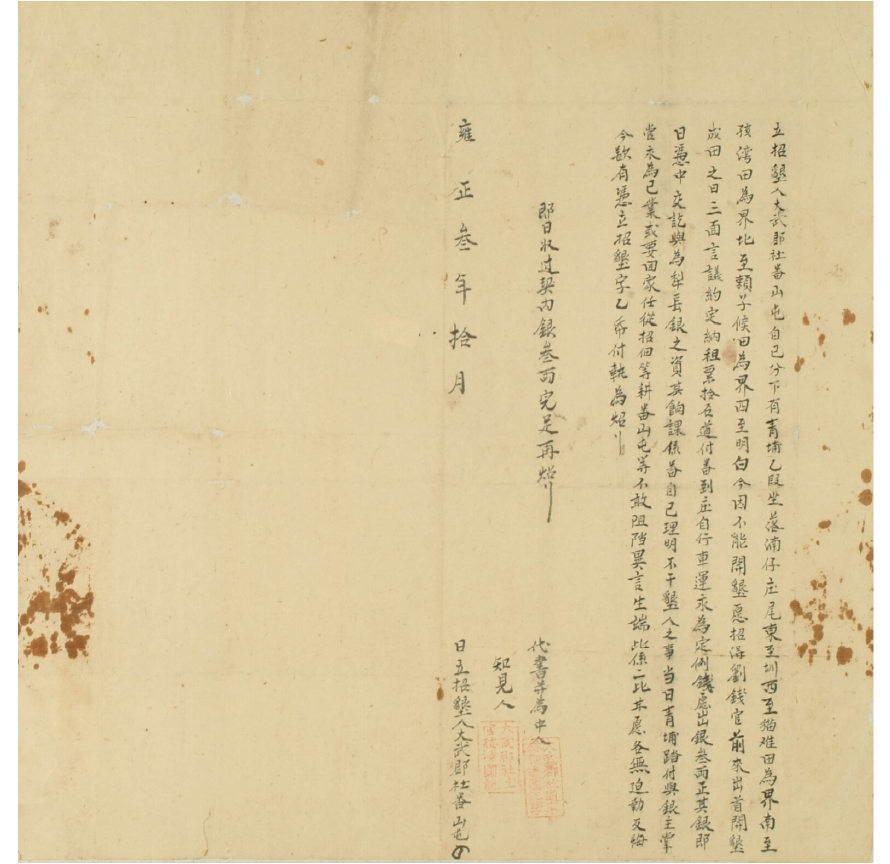 立招墾人大武郡社番山屯自己分下有青埔乙段坐落湳仔庄尾東至圳西至猫难田為界南至
孩湾田為界北至賴子候田為界四至明白今因不能開墾愿招得劉錢官前來出首開墾
成田之日三面言議約定納租粟拾石道付番到庄自行車運永為定例錢愿出銀叁両正其銀即
日憑中交訖與為犁長銀之資其餉課係番自己理明不干墾人之事当日青埔踏付與銀主掌
管永為己業或要回家任從招佃等耕番山屯等不敢阻挡異言生端此係二比甘愿各無迫勒反悔
今欲有憑立招墾字乙帋付執為炤
即日收过契内銀叁両完足再炤
代書并為中人
知見人
雍正叁年拾月 日立招墾人大武郡社番山屯